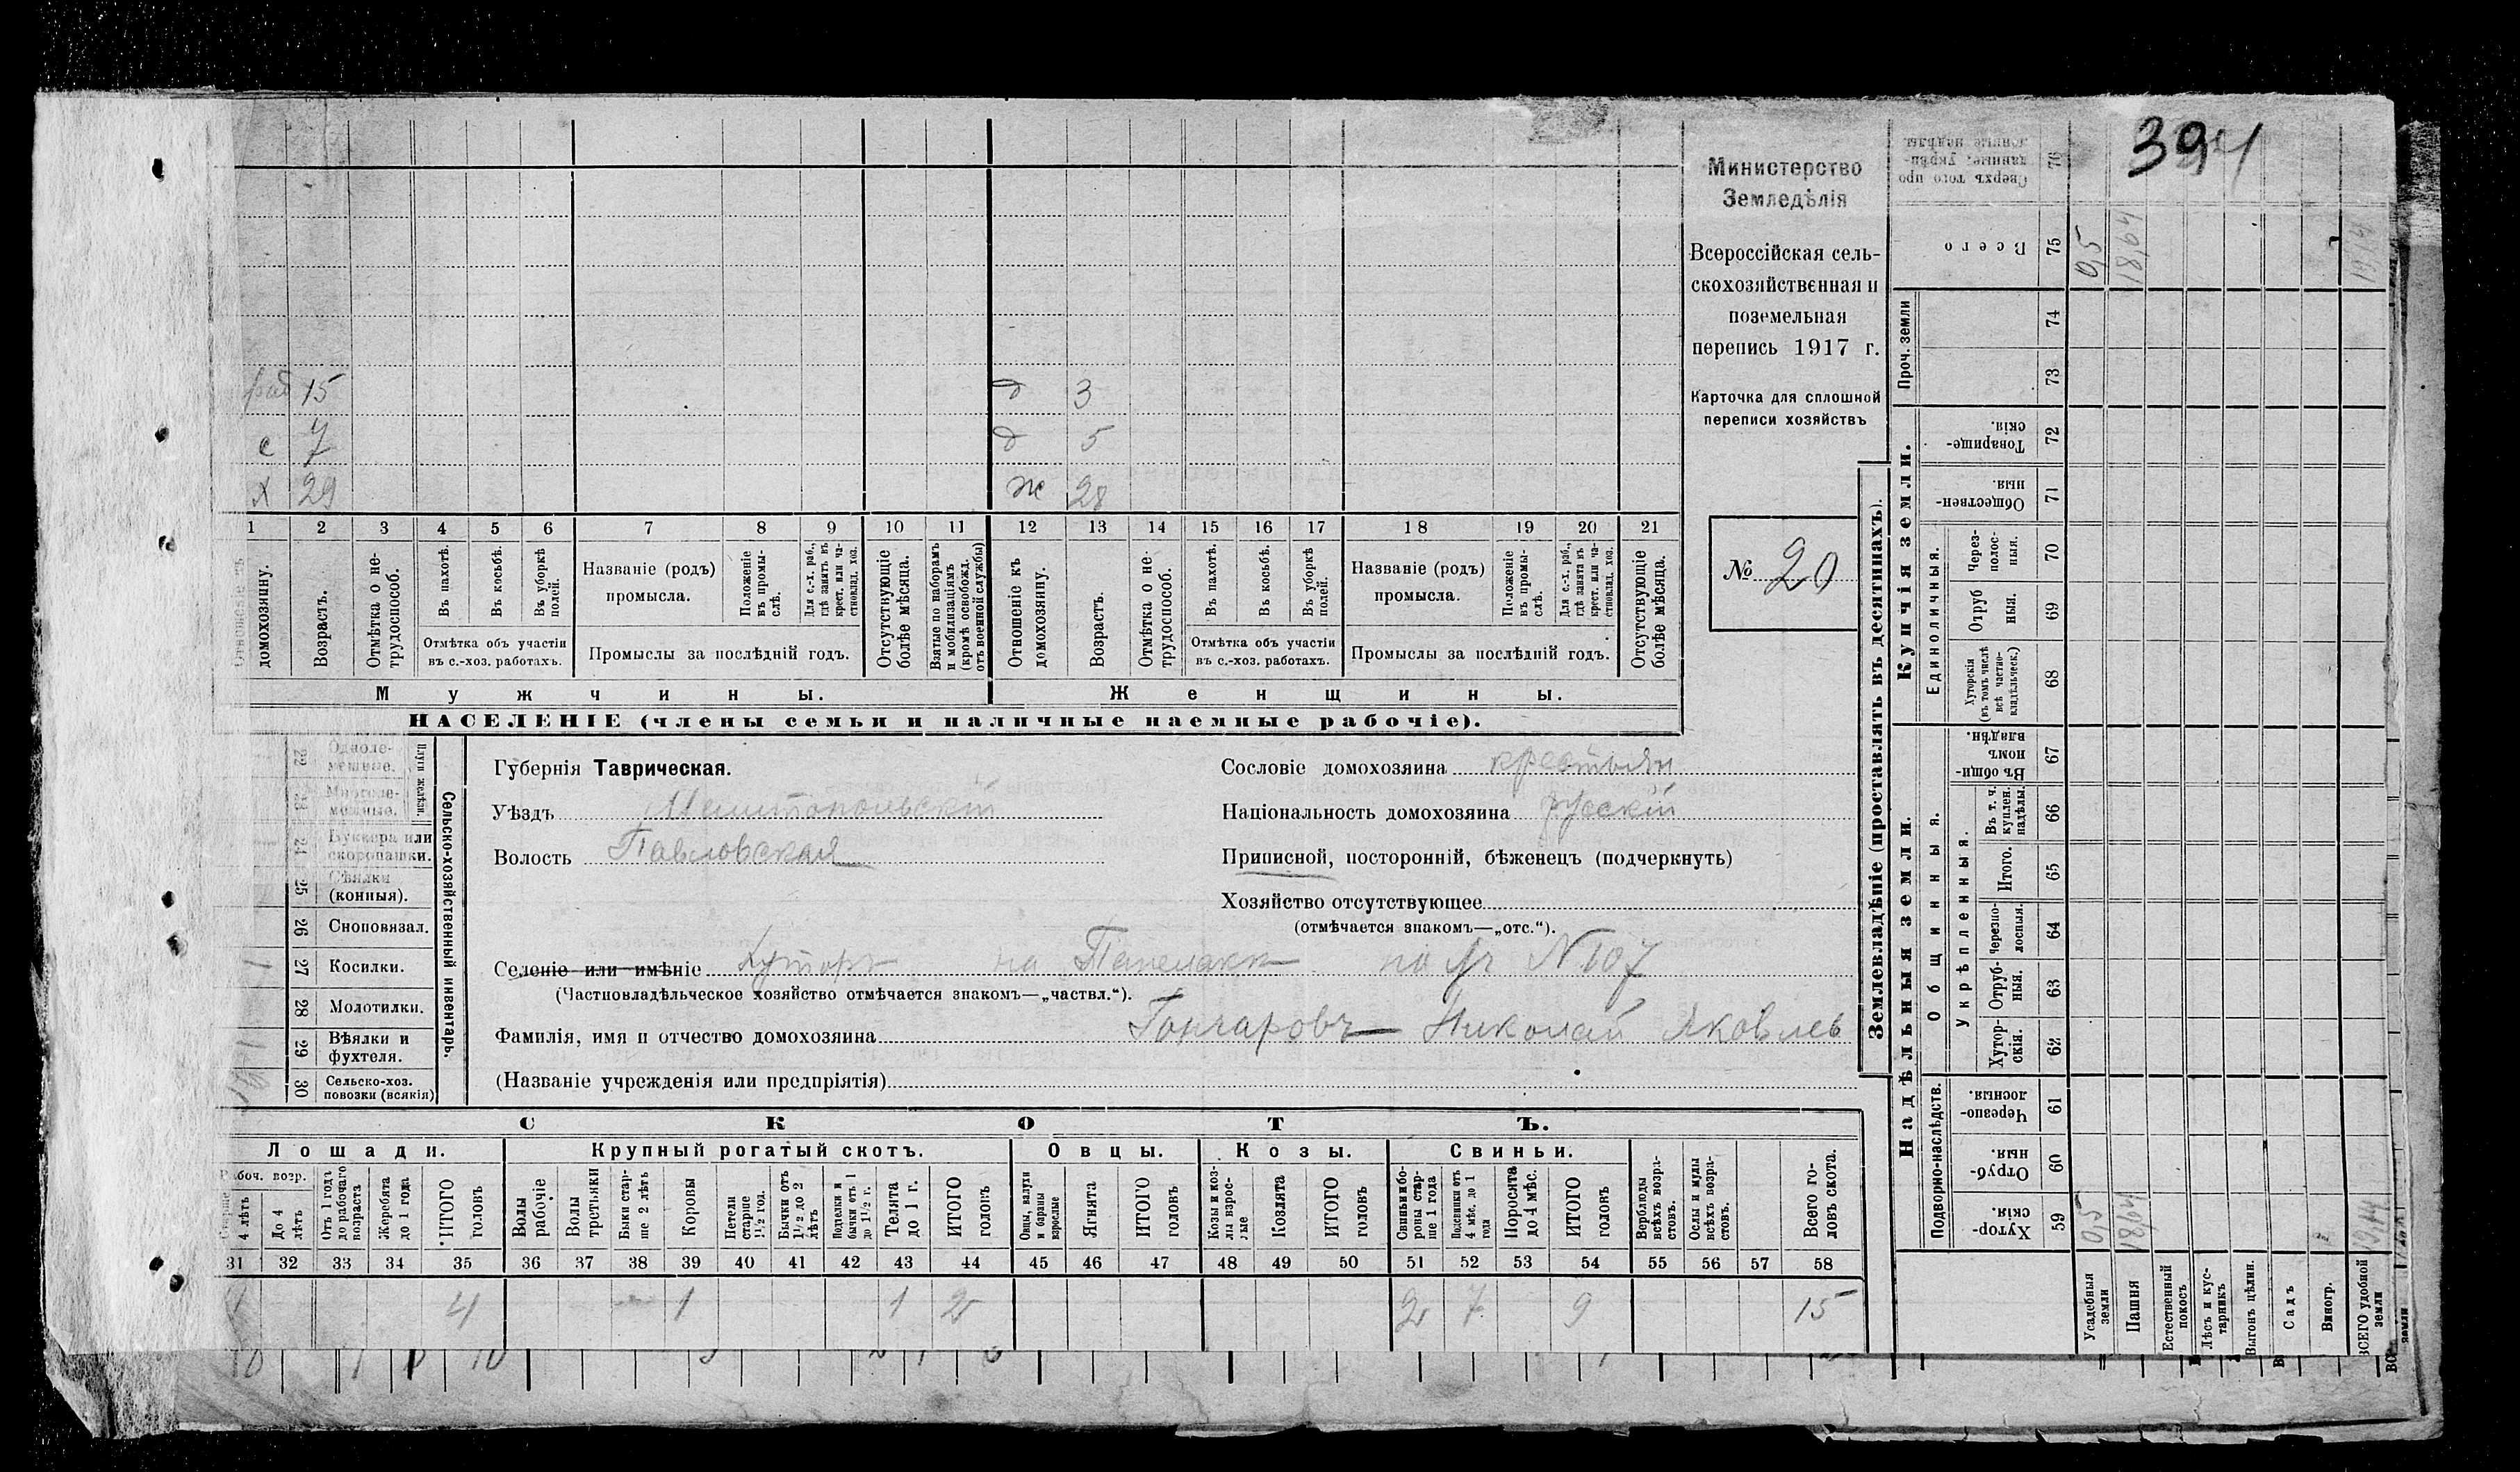 394
Министерство
Земледѣлія
Всероссійская сель-
скохозяйственная и
поземельная
перепись 1917 г.
Карточка для сплошной
переписи хозяйствъ
№ 20
раб 15 д 3
с 7 д 5
х 29 ж 28
1 2 3 4 5 6 7 8 9 10 11 12 13 14 15 16 17 18 19 20 21
Отношеніе къ домохозяину.
Возрастъ.
Отмѣтка о не-трудоспособ.
Въ пахотѣ.
Въ косьбѣ.
Въ уборкѣ полей.
Отмѣтка объ участіи
въ с.-хоз. работахъ.
Названіе (родъ)
промысла.
Положеніе въ промы-слѣ.
Для с.-х. раб., гдѣ занятъ въ крест. или ча-стновлад. хоз.
Промыслы за послѣдній годъ.
Отсутствующіе болѣе мѣсяца.
Взятые по наборамъ и мобилизаціямъ (кромѣ освобожд. отъ военной службы)
Отношеніе къ домохозяину.
Возрастъ.
Отмѣтка о не-трудоспособ.
Въ пахотѣ.
Въ косьбѣ.
Въ уборкѣ полей.
Отмѣтка объ участіи
въ с.-хоз. работахъ.
Названіе (родъ)
промысла.
Положеніе въ промы-слѣ.
Для с.-х. раб., гдѣ занята въ крест. или ча-стновлад. хоз.
Промыслы за послѣдній годъ.
Отсутствующіе болѣе мѣсяца.
Мужчины. Женщины.
НАСЕЛЕНІЕ (члены семьи и наличные наемные рабочіе).
Сельско-хозяйственный инвентарь.
Плуги желѣзн.
22 Одноле-мешные.
23 Многоле-мешные.
24 Буккера или скоропашки.
25 Сѣялки (конныя).
26 Сноповязал.
27 Косилки. 1
28 Молотилки.
29 Вѣялки и фухтеля. 1
30 Сельско-хоз. повозки (всякія)
Губернія Таврическая.
Уѣздъ Мелитопольскій
Волость Павловская
Сословіе домохозяина крестьян
Національность домохозяина русскій
Приписной, посторонній, бѣженецъ (подчеркнуть)
Хозяйство отсутствующее
(отмѣчается знакомъ—„отс.“).
Селеніе или имѣніе Хуторъ на № 107
(Частновладѣльческое хозяйство отмѣчается знакомъ—„частвл.“).
Фамилія, имя и отчество домохозяина Гончаровъ Николай Яковлев
(Названіе учрежденія или предпріятія)
СКОТЪ.
Лошади. Крупный рогатый скотъ. Овцы. Козы. Свиньи.
Рабоч. возр.
Старше 4 лѣтъ
До 4 лѣтъ
Отъ 1 годъ до рабочаго возраста
Жеребята до 1 года
ИТОГО головъ
Волы рабочіе
Волы третьяки
Быки стар-ше 2 лѣтъ
Коровы
Нетели старше 1½ год.
Бычки отъ 1½ до 2 лѣтъ
Подтелки и бычки отъ 1 до 1½ г.
Телята до 1 г.
ИТОГО головъ
Овцы, валухи и бараны взрослые
Ягнята
ИТОГО головъ
Козы и коз-лы взрос-лые
Козлята
ИТОГО головъ
Свиньи и бо-ровы стар-ше 1 года
Подсвинки отъ 4 мѣс. до 1 года
Поросята до 4 мѣс.
ИТОГО головъ
Верблюды всѣхъ возра-стовъ.
Ослы и мулы всѣхъ возра-стовъ.
Всего го-ловъ скота.
31 32 33 34 35 36 37 38 39 40 41 42 43 44 45 46 47 48 49 50 51 52 53 54 55 56 57 58
4 1 1 2 2 7 9 15
Землевладѣніе (проставлять въ десятинахъ).
Надѣльныя земли.
Подворно-наслѣдств.
Хутор-скія. 59
Отруб-ныя. 60
Черезпо-лосныя. 61
Общинныя.
Укрѣпленныя.
Хутор-скія. 62
Отруб-ныя. 63
Черезпо-лосныя. 64
Итого. 65
Въ т. ч. куплен. надѣлы. 66
Въ общи-номъ владѣн. 67
Купчія земли.
Единоличныя.
Хуторскія (въ томъ числѣ всѣ частно-владѣльческ.) 68
Отруб ныя. 69
Через-полос-ныя. 70
Обществен-ныя. 71
Товарище-скія. 72
Проч. земли
73
74
Всего 75
Сверхъ того про 76
Усадебныя земли 0,5 0,5
Пашня 18,64 18,64
Естественный покосъ
Лѣсъ и кус-тарникъ
Выгонъ цѣлин.
Садъ
Виногр.
ВСЕГО удобной земли 19,14 19,14